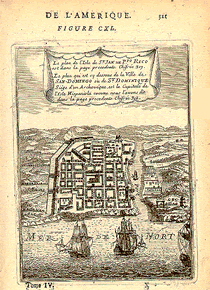 DE L'AMERIQUE. 311
FIGURE CXL.
Le plan de l'Isle de St. Jean de Pto. Rico
est dans la page precedente Chifrée 309.
Le plan qui est cy dessous de la Ville de
SAN-DOMINGO ou de St. DOMINIQUE
Siege d'un Archevêque, est la Capitale de
l'Isle Hispaniola
dans la page precedente
MER DE NORT
Tome IV.